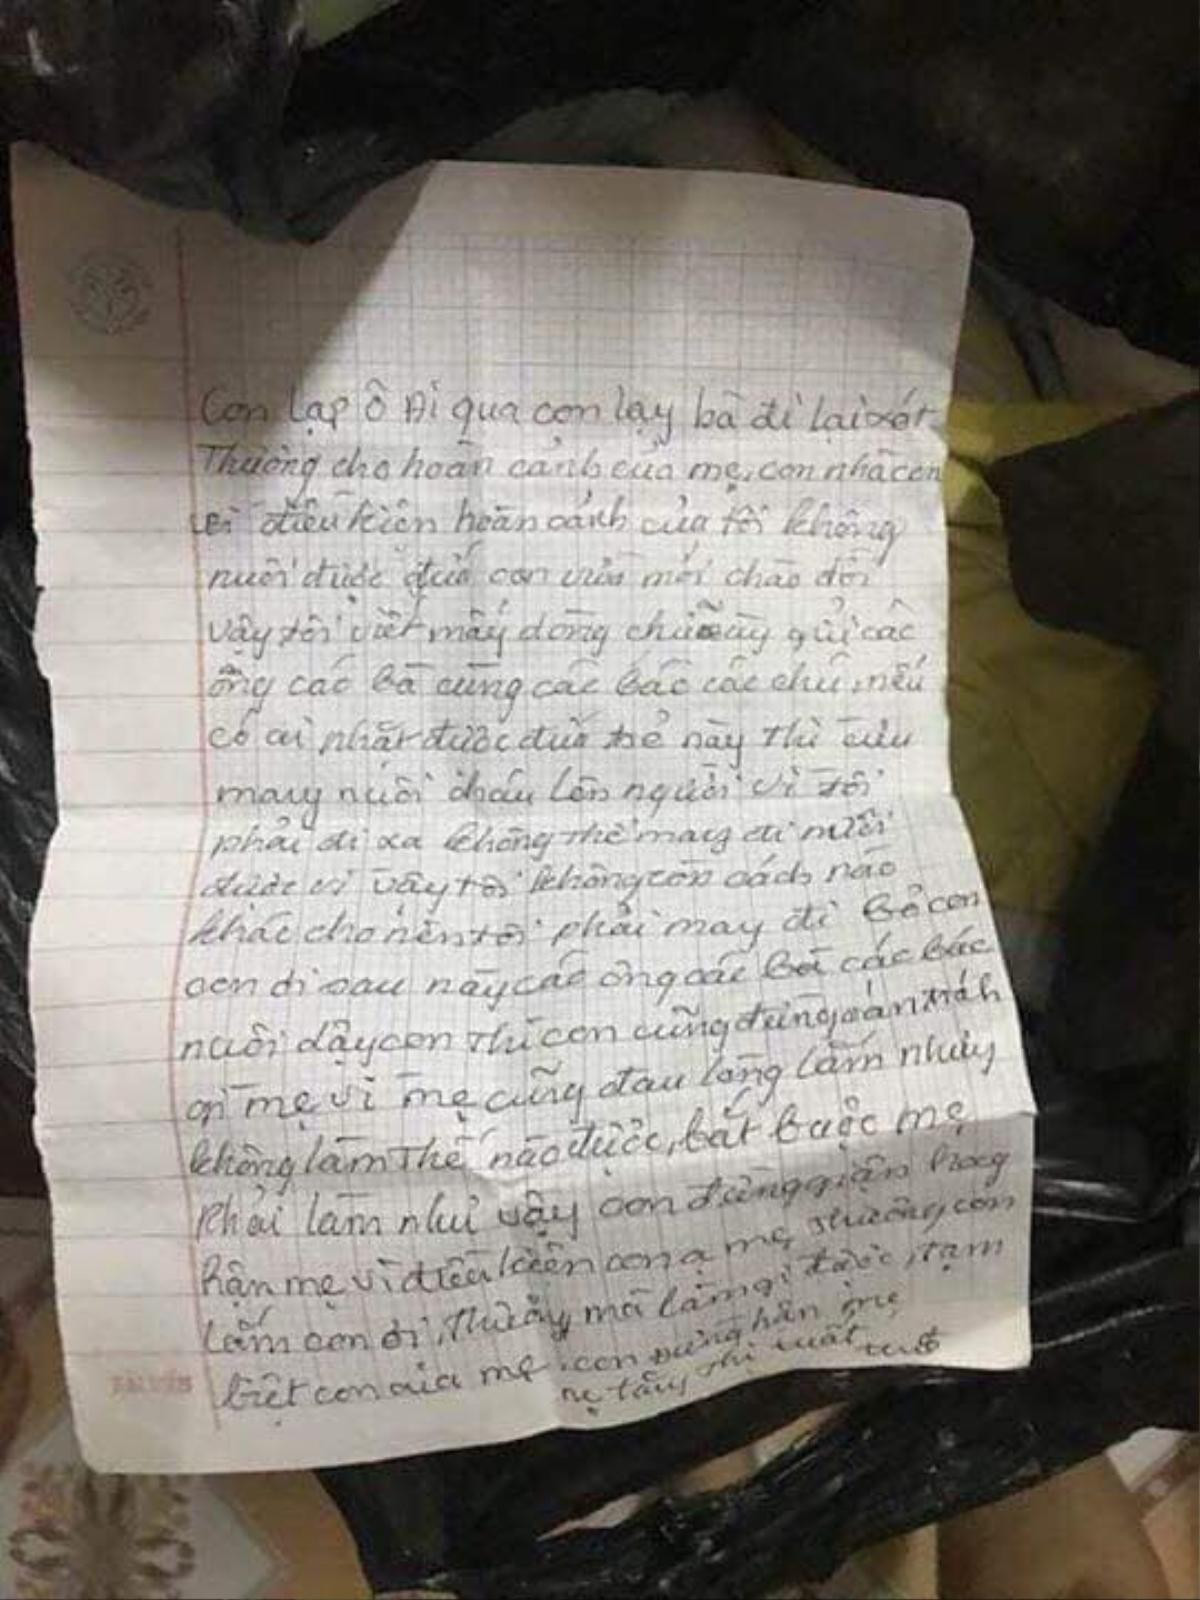 Con lạp ô Ai qua con lạy bà đi lại xót
Thường cho hoàn cảnh của mẹ, con nhà con
vì điều kiện hoàn cảnh của tôi không
nuôi được đứa con vừa mới chào đời
vậy tôi viết mấy dòng chữ này gửi các
ông các bà cùng các bác các chú nếu
có ai nhặt được đứa trẻ này thì cứu
mang nuôi cháu lên người vì tôi
phải đi xa không thể mang đi nuôi
được vì vậy tôi không còn cách nào
khác cho nên tôi phải may đi bỏ con
con đi sau này các ông các bà các bác
nuôi dậy con thì con cũng đừng oán trách
gì mẹ vì mẹ cũng đau lòng lắm nhưng
không làm thế nào được, bắt buộc mẹ
phải làm như vậy con đừng giận hoag
hận mẹ vì điều kiện con ạ mẹ thương con
lắm con ơi, thế mà làm gì được, tạm
biệt con của mẹ. con đừng hận mẹ